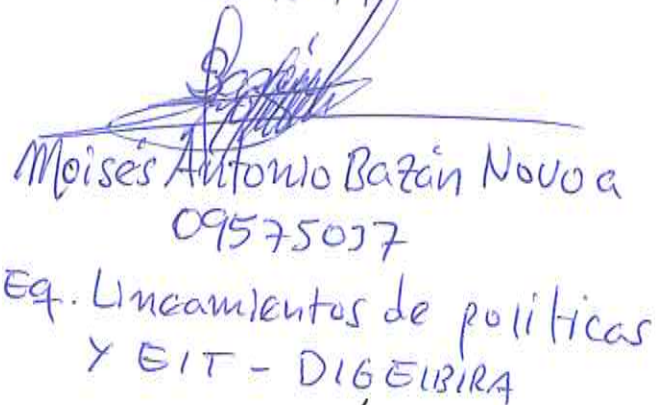 Moisés Antonio Bazán Novoa
09575037
Eq. Lineamientos de políticas
Y EIT - DIGEIBIRA